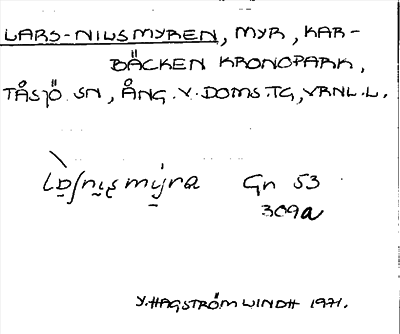 LARS-NILSMYREN, MYR, KAR-
BÄCKEN KRONOPARK,
TÅSJÖ SN, ÅNG.V.DOMS.TG, VRNL.L.
Gn 53
309a
Y. HAGSTRÖM WINDH 1971.